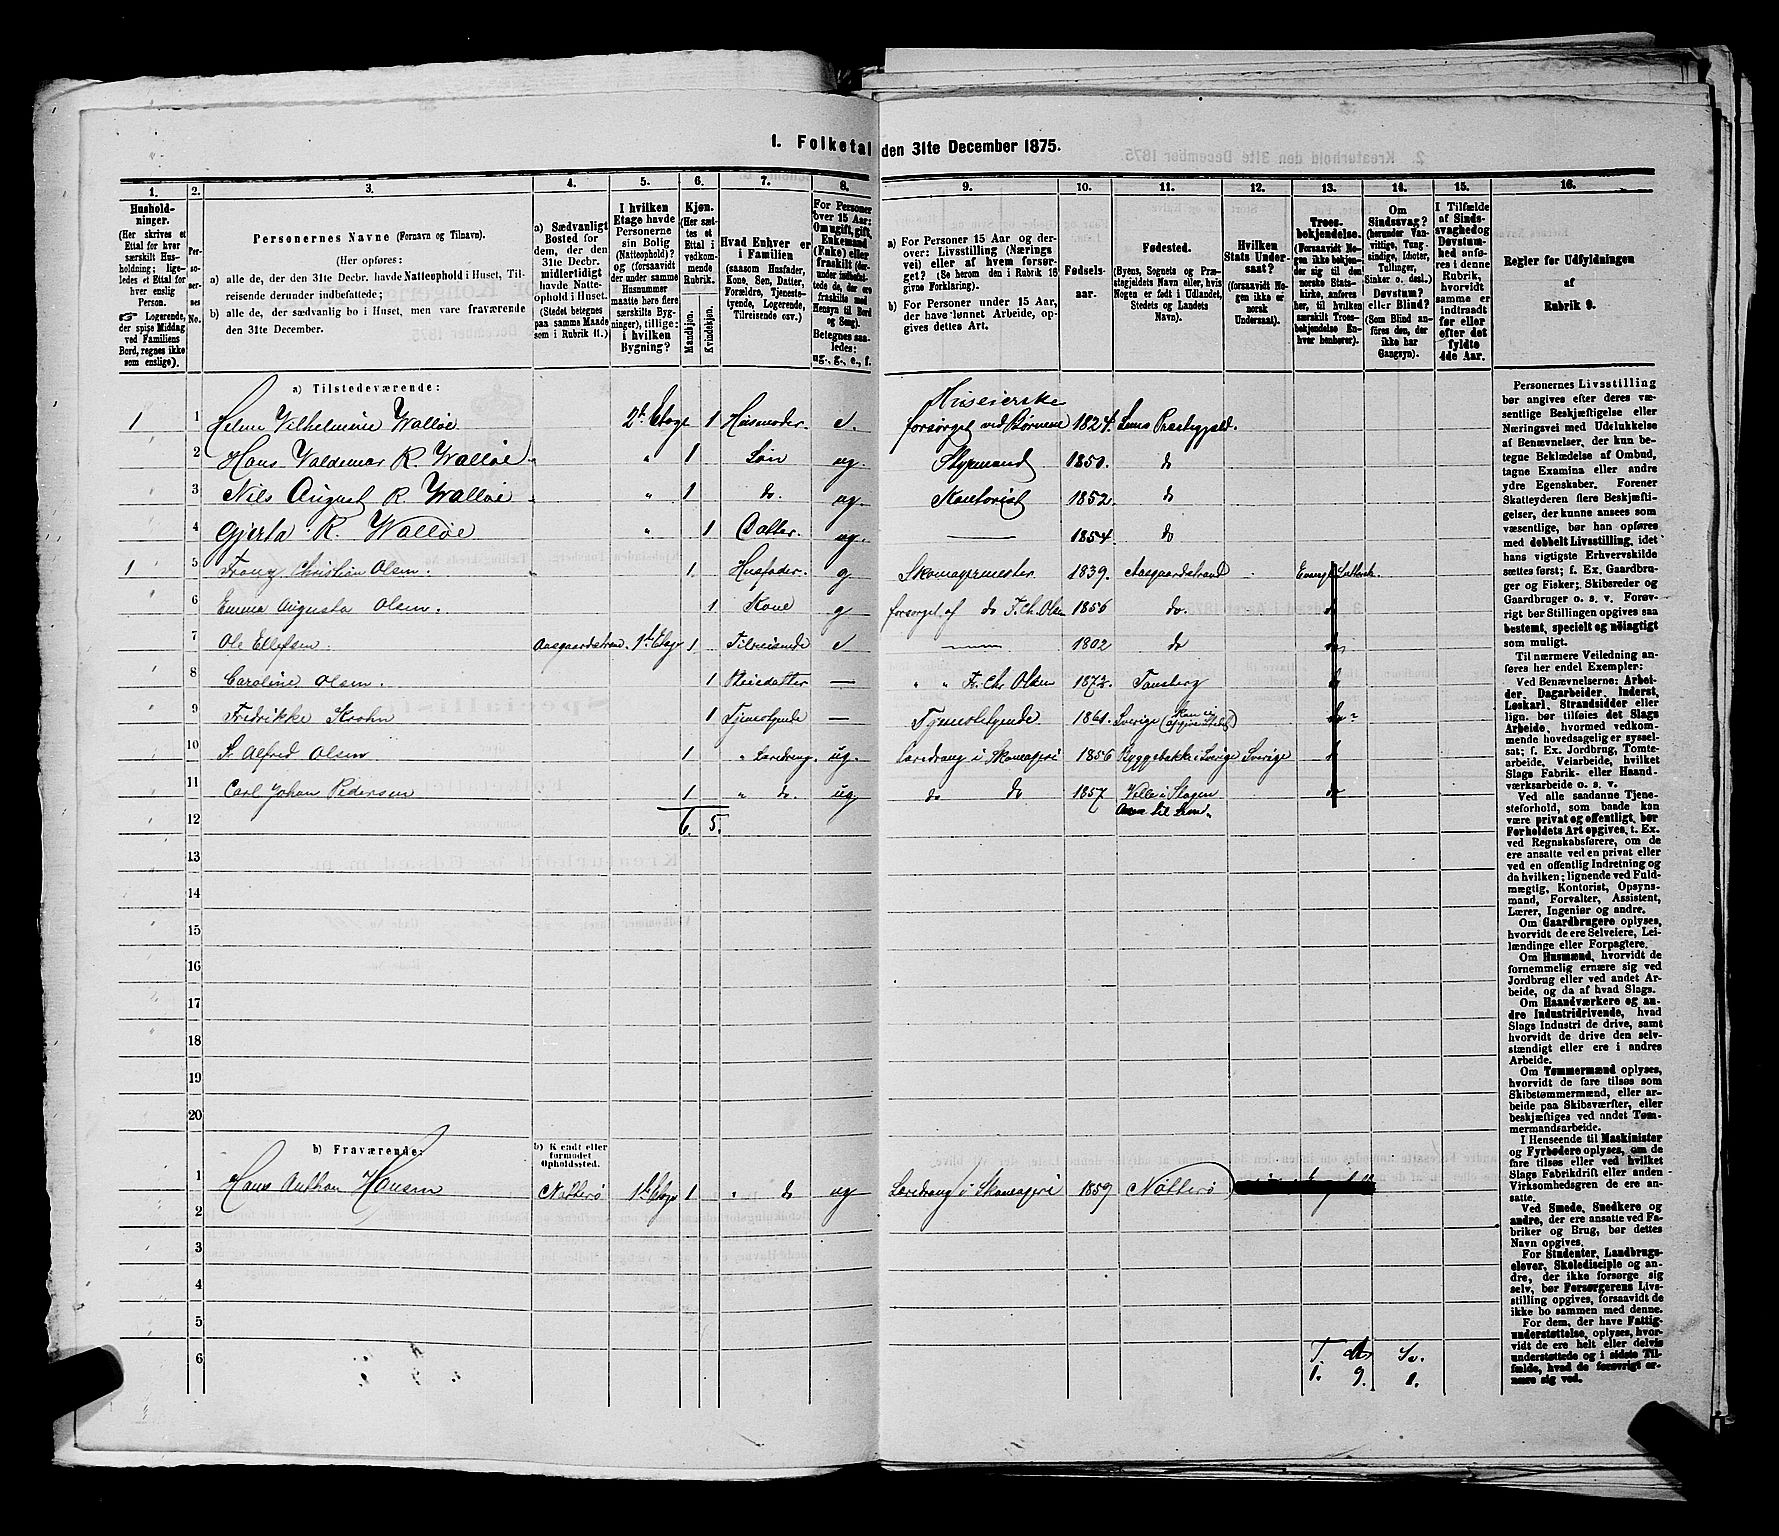 1. Folketal den 31te December 1875.
1. 2. 3. 4. 5. 6. 7. 8. 9. 10. 11. 12. 13. 14. 15. 16.
Husholdninger.
(Her skrives et Ettal for hver særskilt Husholdning; ligeledes et Ettal for hver enslig Person.
☞ Logerende, der spise Middag ved Familiens Bord, regnes ikke som enslige).
Personernes No.
Personernes Navne (Fornavn og Tilnavn).
(Her opføres:
a) alle de, der den 31te Decbr. havde Natteophold i Huset, Tilreisende derunder indbefattede;
b) alle de, der sædvanlig bo i Huset, men vare fraværende den 31te December.
a) Sædvanligt Bosted for dem, der den 31te Decbr. midlertidigt havde Natteophold i Huset. (Stedet betegnes paa samme Maade som i Rubrik 11.)
I hvilken Etage havde Personerne sin Bolig (Natteophold)? og (forsaavidt der under samme Husnummer maatte høre flere særskilte Bygninger), tillige: i hvilken Bygning?
Kjøn. (Her sættes et Ettal i vedkommende Rubrik.
Mandkjøn.
Kvindekjøn.
Hvad Enhver er i Familien
(saasom Husfader, Kone, Søn, Datter, Forældre, Tjenestetyende, Logerende, Tilreisende osv.)
For Personer over 15 Aar: Om ugift, gift, Enkemand (Enke) eller fraskilt (derunder indbefattede de, der ere fraskilte med Hensyn til Bord og Seng).
Betegnes saaledes: ug., g., e., f.
a) For Personer 15 Aar og derover: Livsstilling (Næringsvei) eller af hvem forsørget? (Se herom den i Rubrik 16 givne Forklaring).
b) For Personer under 15 Aar, der have lønnet Arbeide, opgives dettes Art.
Fødselsaar.
Fødested.
(Byens, Sognets og Præstegjeldets Navn eller, hvis Nogen er født i Udlandet, Stedets og Landets Navn).
Hvilken Stats Undersaat?
(forsaavidt Nogen ikke er norsk Undersaat).
Troesbekjendelse.
(Forsaavidt Nogen ikke bekjender sig til den norske Statskirke, anføres her, til hvilken særskilt Troesbekjendelse Enhver henhører).
Om Sindssvag? (herunder Vanvittige, Tungsindige, Idioter, Tullinger, Sinker o. desl.) Døvstum? eller Blind? (Som Blind anføres den, der ikke har Gangsyn).
I Tilfælde af Sindssvaghed og Døvstumhed anføres i denne Rubrik, hvorvidt samme er indtraadt før eller efter det fyldte 4de Aar.
Regler for Udfyldningen af Rubrik 9.
a) Tilstedeværende:
Huseierske
1 1 Helene Vilhelmine Walløe 2d Etage 1 Husmoder e. forsørget ved Børnene 1824. Sems Præstegjeld.
2 Hans Valdemar R. Walløe " 1 Søn ug. Styrmand 1850. do
3 Nils August R Walløe " 1 do. ug. Kontorist 1852. do
4 Gjerta R. Walløe " 1 Datter. ug. — 1854. do
1 5 Franz Christian Olsen. 1. Husfader. g. Skomagermester 1839. Aasgaardstrand Evangl. Luthersk.
6 Emma Augusta Olsen. 1 Kone g forsørget af do F. Ch. Olsen 1856 do. do
7 Ole Ellefsen Aasgaardstrand 1ste Etage 1 Tilreisende e — 1802 do do
8 Caroline Olsen. 1 Pleiedatter — " " Fr. Chr. Olsen 1872. Tønsberg do
9 Fredrikke Krohn 1 Tjenestyende — Tjenestetyende 1861. Sverige (kan ei opgives Sted) do
10 S. Alfred Olsen 1 " Læredreng. ug. Læredreng i Skomageri 1856 Byggebakke i Sverige Sverige
11 Carl Johan Pedersen 1 " do. ug do do 1857 Velle i Slagen do
12 6. 5.
13
14
15
16
17
18
19
20
b) Fraværende:
b) Kjendt eller formodet Opholdssted.
1 Hans Anthon Hansen Nøtterø 1ste Etage 1 " do ug Læredreng i Skomageri 1859 Nøtterø
2
3
4
5
6
1. 9. 1.
Personernes Livsstilling bør angives efter deres væsentlige Beskjæftigelse eller Næringsvei med Udelukkelse af Benævnelser, der kun betegne Beklædelse af Ombud, tagne Examina eller andre ydre Egenskaber. Forener Skatteyderen flere Beskjæftigelser, der kunne ansees som væsentlige, bør han opføres med dobbelt Livsstilling, idet hans vigtigste Erhvervskilde sættes først; f. Ex. Gaardbruger og Fisker; Skibsreder og Gaardbruger o. s. v. Forøvrigt bør Stillingen opgives saa bestemt, specielt og nøiagtigt som muligt.
Til nærmere Veiledning anføres her endel Exempler:
Ved Benævnelserne: Arbeider, Dagarbeider, Inderst, Løskarl, Strandsidder eller lign. bør tilføies det Slags Arbeide, hvormed vedkommende hovedsagelig er sysselsat; f. Ex. Jordbrug, Tomtearbeide, Veiarbeide, hvilket Slags Fabrik- eller Haandværksarbeide o. s. v.
Ved alle saadanne Tjenesteforhold, som baade kan være privat og offentligt, bør Forholdets Art opgives, t. Ex. ved Regnskabsførere, om de ere ansatte ved en privat eller ved en offentlig Indretning og da hvilken; lignende ved Fuldmægtig, Kontorist, Opsynsmand, Forvalter, Assistent, Lærer, Ingeniør og andre.
Om Gaardbrugere oplyses, hvorvidt de ere Selveiere, Leilændinge eller Forpagtere.
Om Husmænd, hvorvidt de fornemmelig ernære sig ved Jordbrug eller ved andet Arbeide, og da af hvad Slags.
Om Haandværkere og andre Industridrivende, hvad Slags Industri de drive, samt hvorvidt de drive den selvstændigt eller ere i andres Arbeide.
Om Tømmermænd oplyses, hvorvidt de fare tilsøs som Skibstømmermænd, eller arbeide paa Skibsværfter, eller beskjæftiges ved andet Tømmermandsarbeide.
I Henseende til Maskinister og Fyrbødere oplyses, om de fare tilsøs eller ved hvilket Slags Fabikdrift eller anden Virksomhedsgren de ere ansatte.
Ved Smede, Snedkere og andre, der ere ansatte ved Fabriker og Brug, bør dettes Navn opgives.
For Studenter, Landbrugselever, Skoledisciple og andre, der ikke forsørge sig selv, bør Forsørgerens Livsstilling opgives, forsaavidt de ikke bo sammen med denne.
For dem, der have Fattigunderstøttelse, oplyses, hvorvidt de ere helt eller delvis understøttede og i sidste Tilfælde, hvad de forøvrigt ernære sig ved.